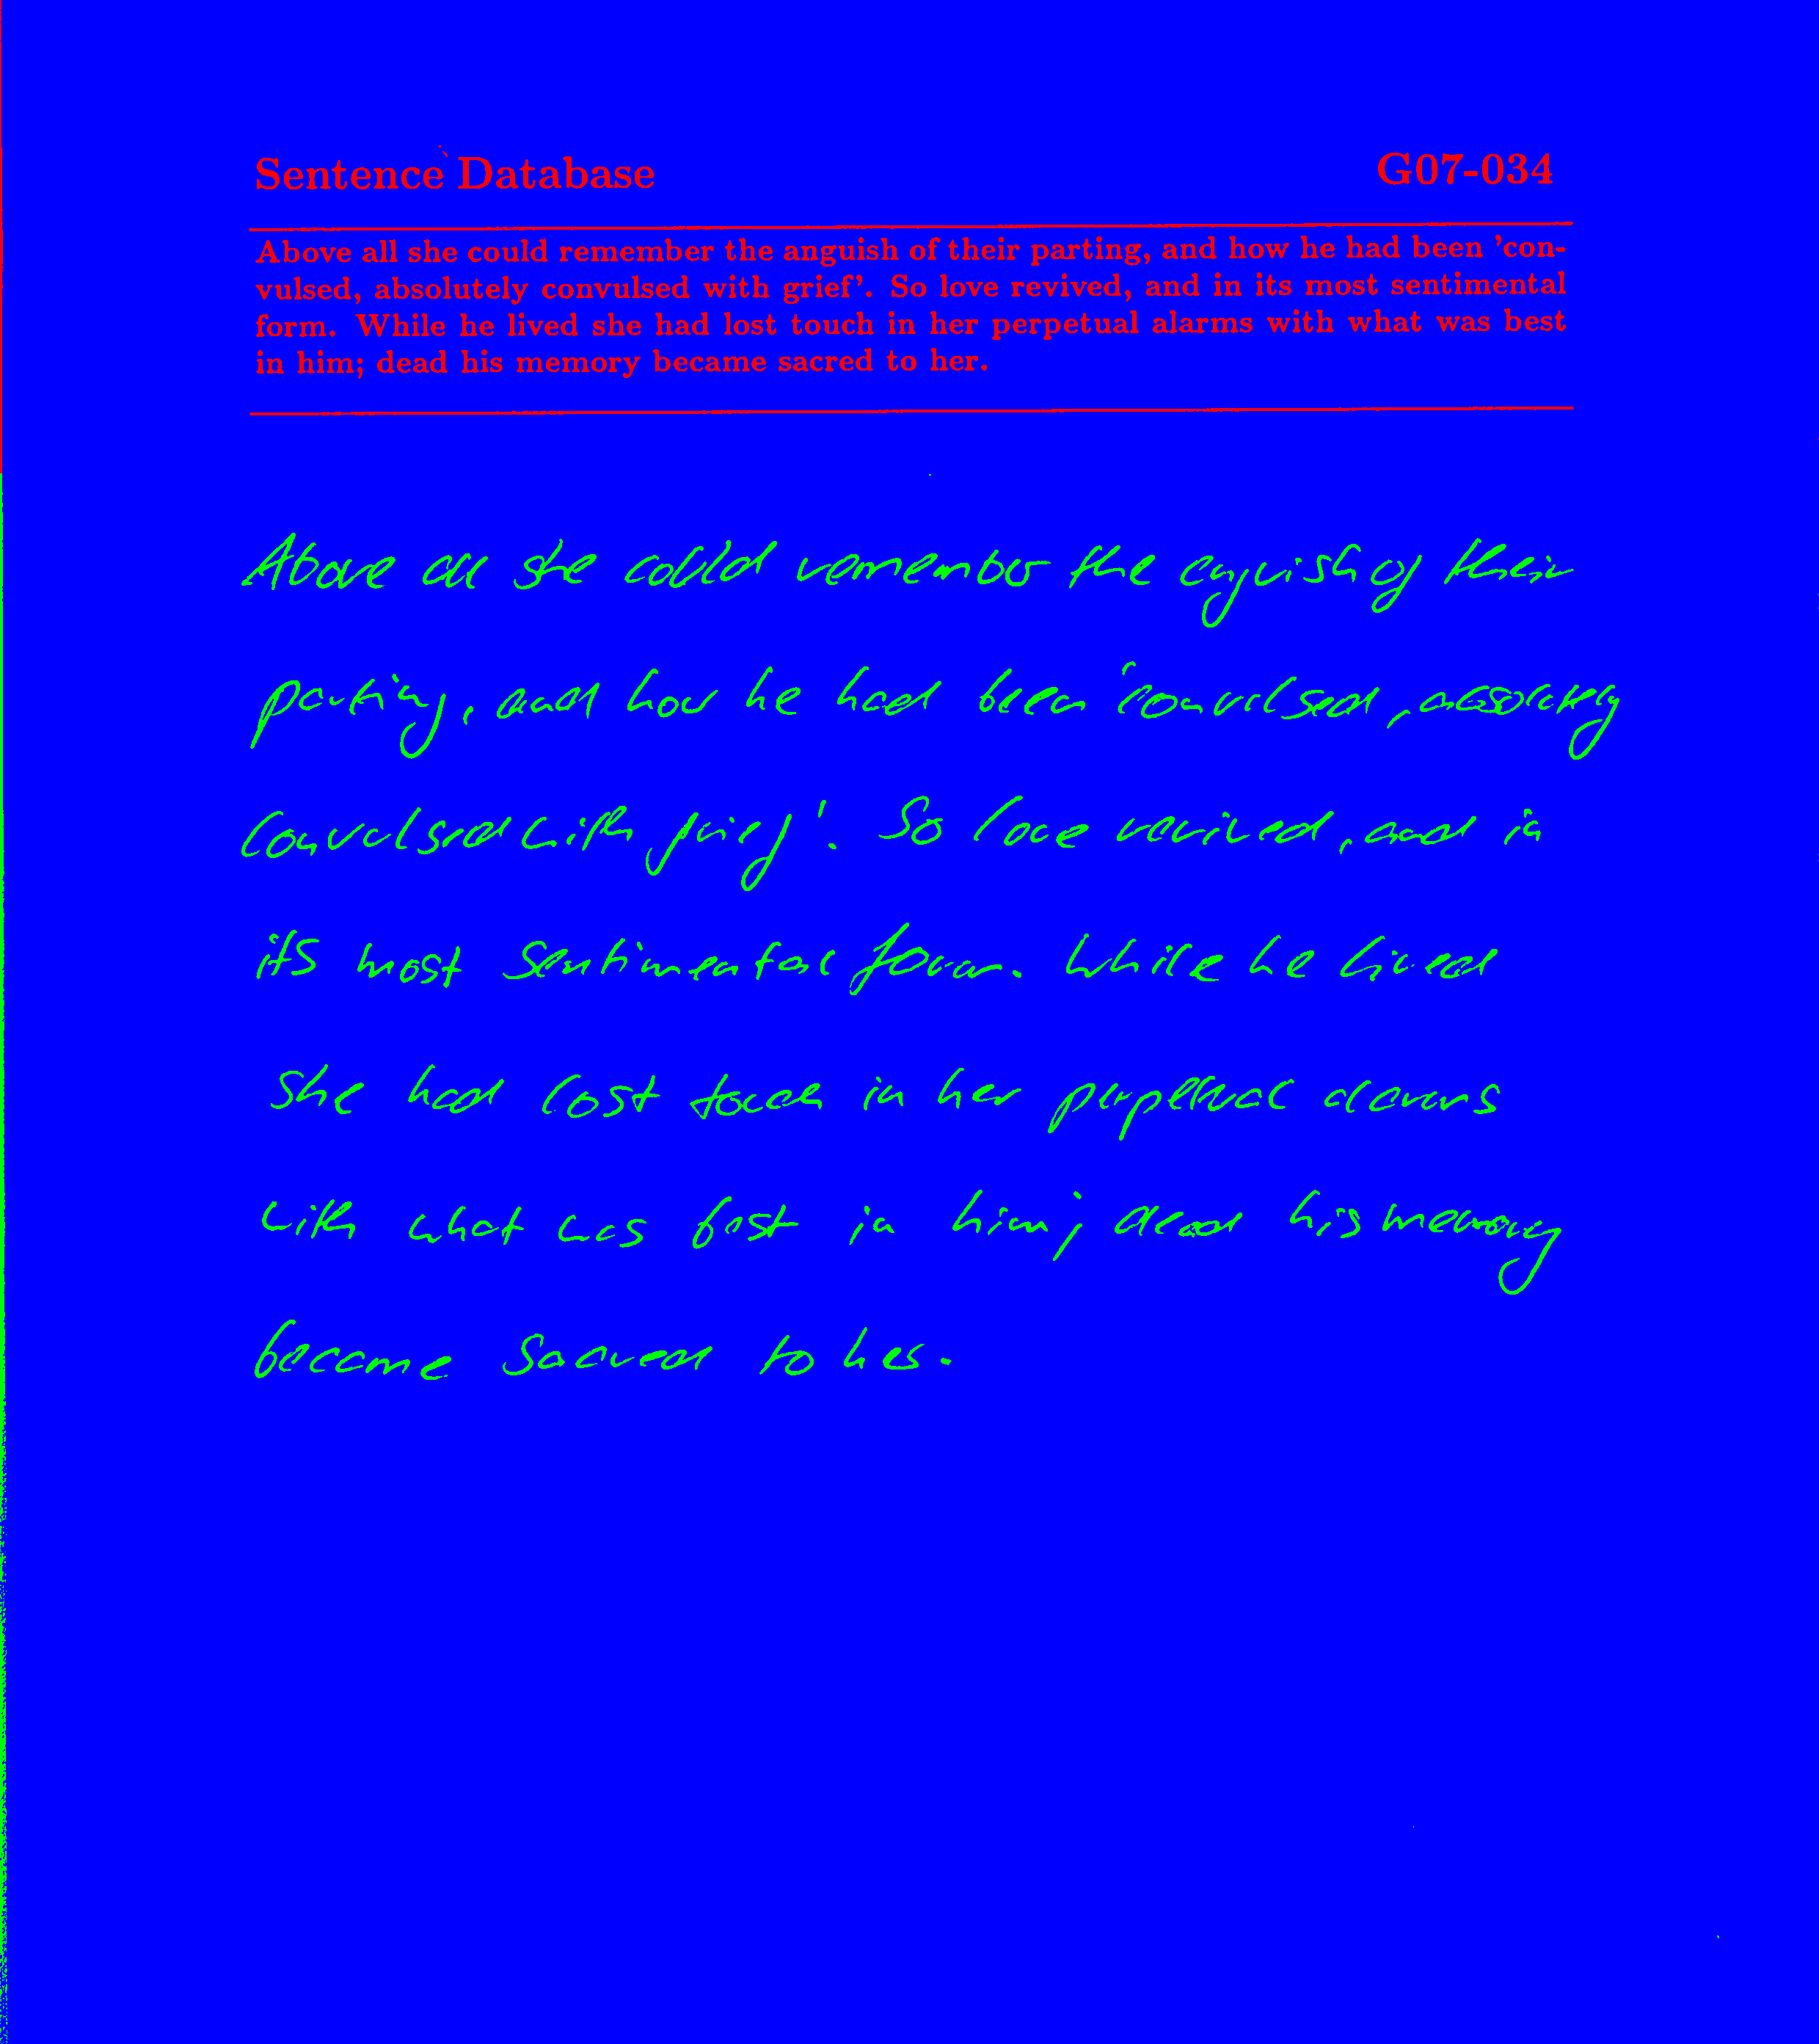 Sentence Database G07-034
Above all she could remember the anguish of their parting, and how he had been 'con-
vulsed, absolutely convulsed with grief'. So love revived, and in its most sentimental
form. While he lived she had lost touch in her perpetual alarms with what was best
in him; dead his memory became sacred to her.
Above all she could remember the anguish of their
parting, and how he had been 'convulsed, absolutely
convulsed with grief'. So love revived, and in
its most sentimental form. While he lived
she had lost touch in her perpetual alarms
with what was best in him; dead his memory
became sacred to her.